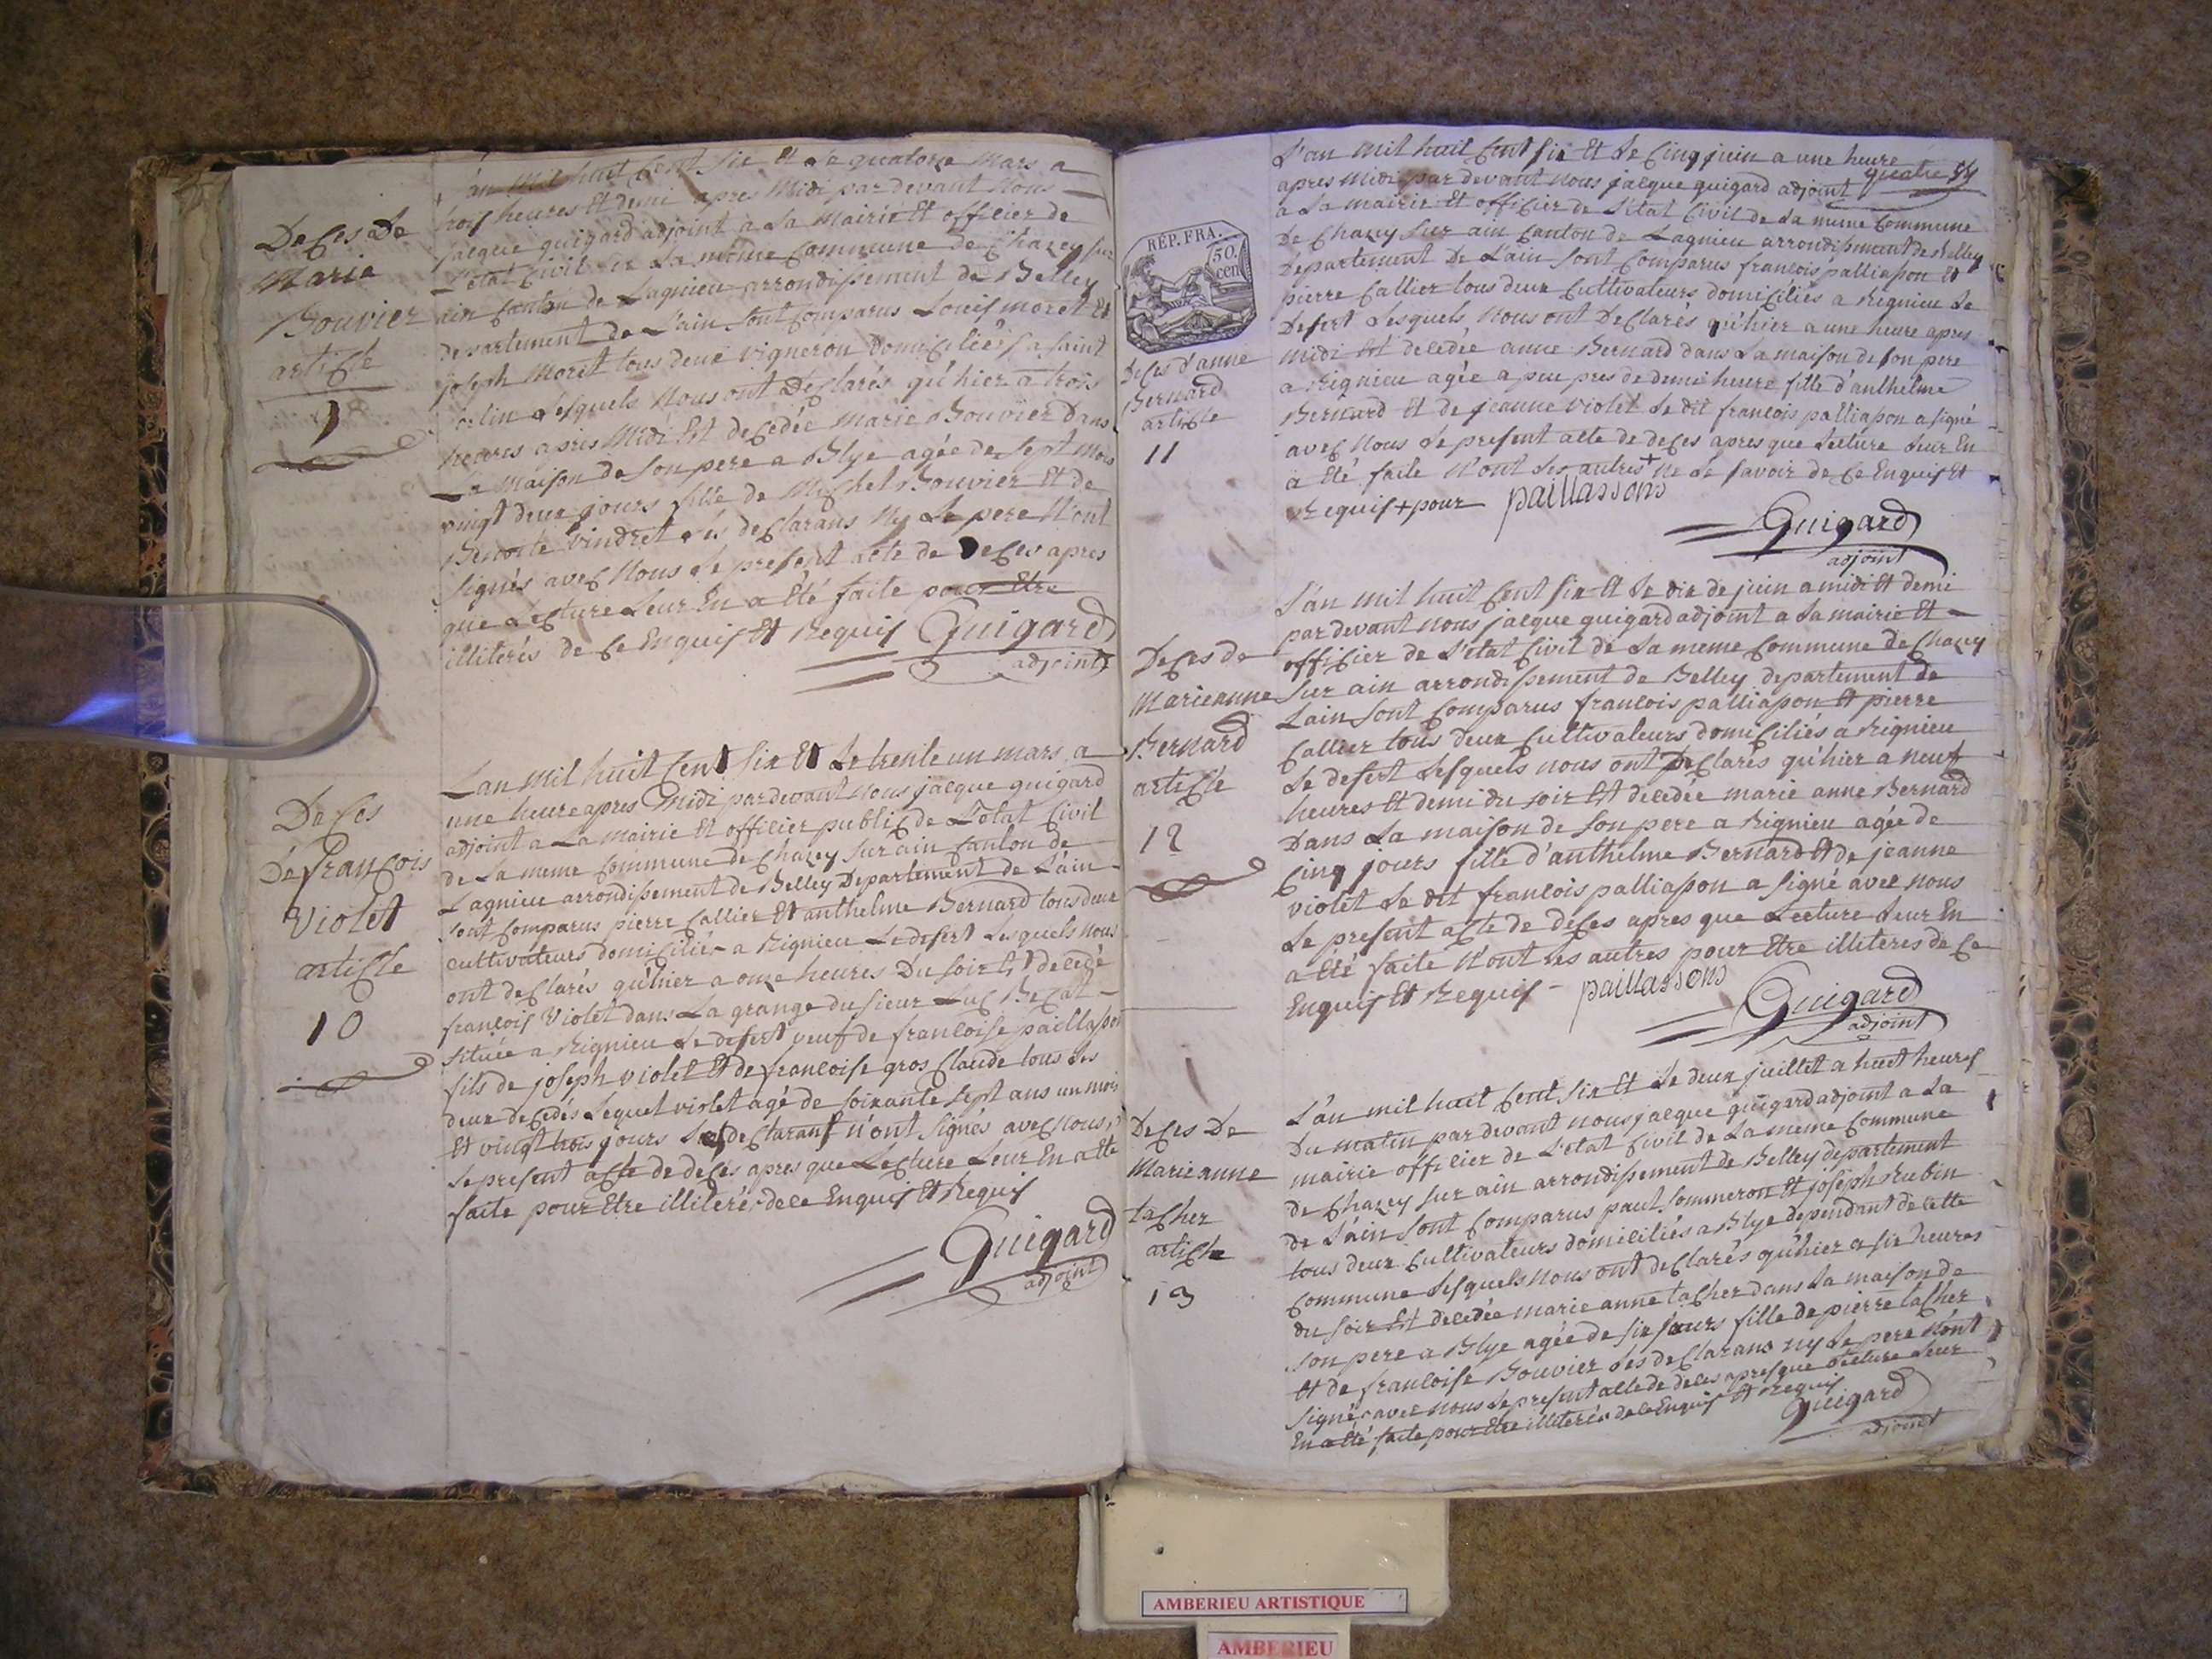 Deces de
Marie
Bouvier
article
9
L'an mil huit Cent six Et Le quatorze mars a
trois heures Et demi apres Midi par devant Nous
jacque guigard adjoint a La Mairie Et officier de
L'état Civil de La même Commune de Chazey sur
ain Canton de Lagnieu arrondissement de Belley
departement de L'ain sont Comparus Louis moret Et
joseph Moret tous deux vigneron domiciliés a saint
Lesquels Nous ont Déclarés qu'hier a trois
heures apres Midi Est decedée Marie Bouvier Dans
La Maison de son pere a Blye agée de sept mois
vingt deux jours fille de Michel Bouvier Et de
Benoite vindret Les declarans Ny Le pere N'ont
signés avec Nous Le present acte de Deces apres
que Lecture Leur En a Eté faite pour Etre
illiterés de Ce Enquis Et Requis Guigard
adjoint
Deces
De françois
Violet
article
10
Lan Mil huit Cent six Et Le trente un mars a
une heure apres Midi par devant Nous jacque guigard
adjoint a La mairie Et officier public de L'etat Civil
de La meme Commune de Chazey sur ain Canton de
Lagnieu arrondissement de Belley Departement de L'ain
sont Comparus pierre Callier Et anthelme Bernard tous deux
cultivateurs domiciliés a Rignieu Le desert Lesquels nous
ont declarés qu'hier a onze heures Du soir Est decedé
françois Violet dans La grange du sieur Luc Becat
située a Rignieu Le desert veuf de françoise paillasson
fils de joseph violet Et de françoise gros Claude tous Les
deux decedés Lequel violet agé de soixante sept ans un mois
Et vingt trois jours Les declarans n'ont signés avec nous
Le present acte de deces apres que Lecture Leur En a Eté
faite pour Etre illiterés de ce Enquis Et Requis
Guigard
adjoint
quatre
RÉP. FRA.
50.
cen
Deces d'anne
Bernard
article
11
L'an Mil huit Cent six Et Le Cinq juin a une heure
apres Midi par devant Nous jacque guigard adjoint
a La mairie Et officier de L'état Civil de La meme Commune
De Chazey sur ain Canton de Lagnieu arrondissement de Belley
Departement De L'ain sont Comparus francois palliasson Et
pierre Callier tous deux Cultivateurs domiciliés a Rignieu Le
Desert Lesquels Nous ont Declarés qu'hier a une heure apres
midi Est decedée anne Bernard dans La maison de son pere
a Rignieu agée a peu pres de demi heure fille d'anthelme
Bernard Et de jeanne violet Le dit francois palliasson a signé
avec Nous Le present acte de deces apres que Lecture Leur En
a Eté faite N'ont Les autres + Ne Le savoir de Ce Enquis Et
Requis + pour paillassons
Guigard
adjoint
Deces de
Marieanne
Bernard
article
12
L'an mil huit Cent six Et Le dix de juin a midi Et demi
par devant nous jacque guigard adjoint a La mairie Et
officier de L'etat Civil de La meme Commune de Chazey
sur ain arrondissement de Belley departement de
Lain sont Comparus francois palliasson Et pierre
Callier tous deux Cultivateurs domiciliés a Rignieu
Le desert Lesquels nous ont Declarés qu'hier a neuf
heures Et demi du soir Est decedée marie anne Bernard
Dans La maison de son pere a Rignieu agée de
Cinq jours fille d'anthelme Bernard Et de jeanne
violet Le dit francois palliasson a signé avec nous
Le present acte de deces apres que Lecture Leur En
a Eté faite N'ont Les autres pour Etre illiteres de Ce
Enquis Et Requis paillassons
Guigard
adjoint
Deces De
Marieanne
tacher
article
13
L'an mil huit Cent six Et Le deux juillet a huit heures
Du matin par devant nous jacque guigard adjoint a La
mairie officier de L'etat Civil de La meme Commune
de Chazey sur ain arrondissement de Belley departement
de L'ain sont Comparus paul sommeron Et joseph Rubin
tous deux Cultivateurs domiciliés a Blye dependant de cette
Commune Lesquels Nous ont declarés qu'hier a six heures
du soir Est decedée marie anne tacher dans La maison de
son pere a Blye agée de six jours fille de pierre tacher
Et de francoise Bouvier Les declarans ny Le pere N'ont
signés avec nous Le present acte de deces apres que Lecture Leur
En a Eté faite pour Etre illiterés de ce Enquis Et Requis
Guigard
adjoint
AMBERIEU ARTISTIQUE
AMBERIEU